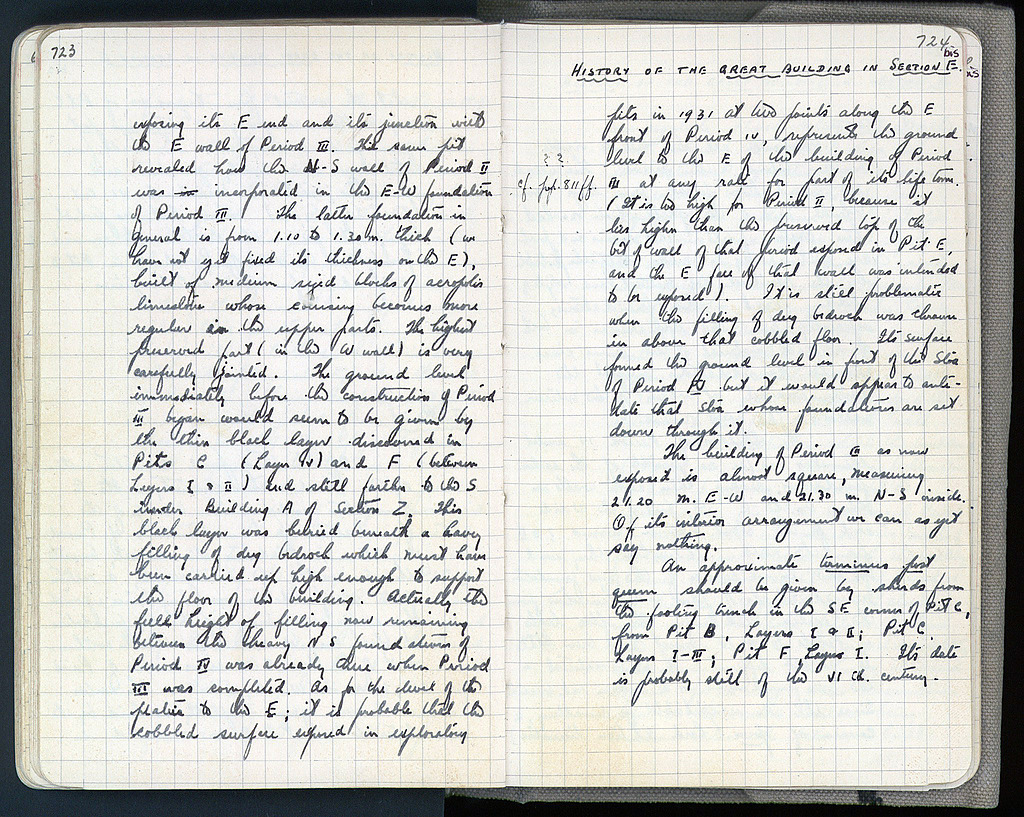 723
exposing its E end and its junction with
the E wall of Period III. The same pit
revealed how the N-S wall of Period II
was incorporated in the E-W foundation
of Period III. The latter foundation in
general is from 1.10 to 1.30 m. thick (we
have not yet fixed its thickness on the E),
built of medium sized blocks of acropolis
limestone whose coursing becomes more
regular in the upper parts. The highest
preserved part (in the W wall) is very
carefully jointed. The ground level
immediately before the construction of Period
III began would seem to be given by
the thin black layer discovered in
Pits C (Layer IV) and F (between
Layers I & II) and still farther to the S
under Building A of Section Z. This
black layer was buried beneath a heavy
filling of dug bedrock which must have
been carried up high enough to support
the floor of the building. Actually the
full height of filling now remaining
between the heavy N S foundations of
Period IV was already there when Period
III was completed. As for the level of the
plateia to the E; it is probable that the
cobbled surface exposed in exploratory
724 bis
HISTORY OF THE GREAT BUILDING IN SECTION E.
pits in 1931 at two points along the E
front of Period IV, represents the ground
level to the E of the building of Period
? ?
cf. pp. 811 ff.
III at any rate for part of its life time.
(It is too high for Period II, because it
lies higher than the preserved top of the
bit of wall of that period exposed in Pit E,
and the E face of that wall was intended
to be exposed). It is still problematic
when the filling of dug bedrock was thrown
in above that cobbled floor. Its surface
formed the ground level in front of the Stoa
of Period IV but it would appear to ante-
date that Stoa whose foundations are set
down through it.
The building of Period as now
exposed is almost square, measuring
21.20 m. E-W and 21.30 m. N-S inside.
Of its interior arrangement we can as yet
say nothing.
An approximate terminus post
quem should be given by sherds from
the footing trench in the SE corner of Pit C,
from Pit B, Layers I & II; Pit C
Layers I-III; Pit F, Layer I. Its date
is probably still of the VI th. century.